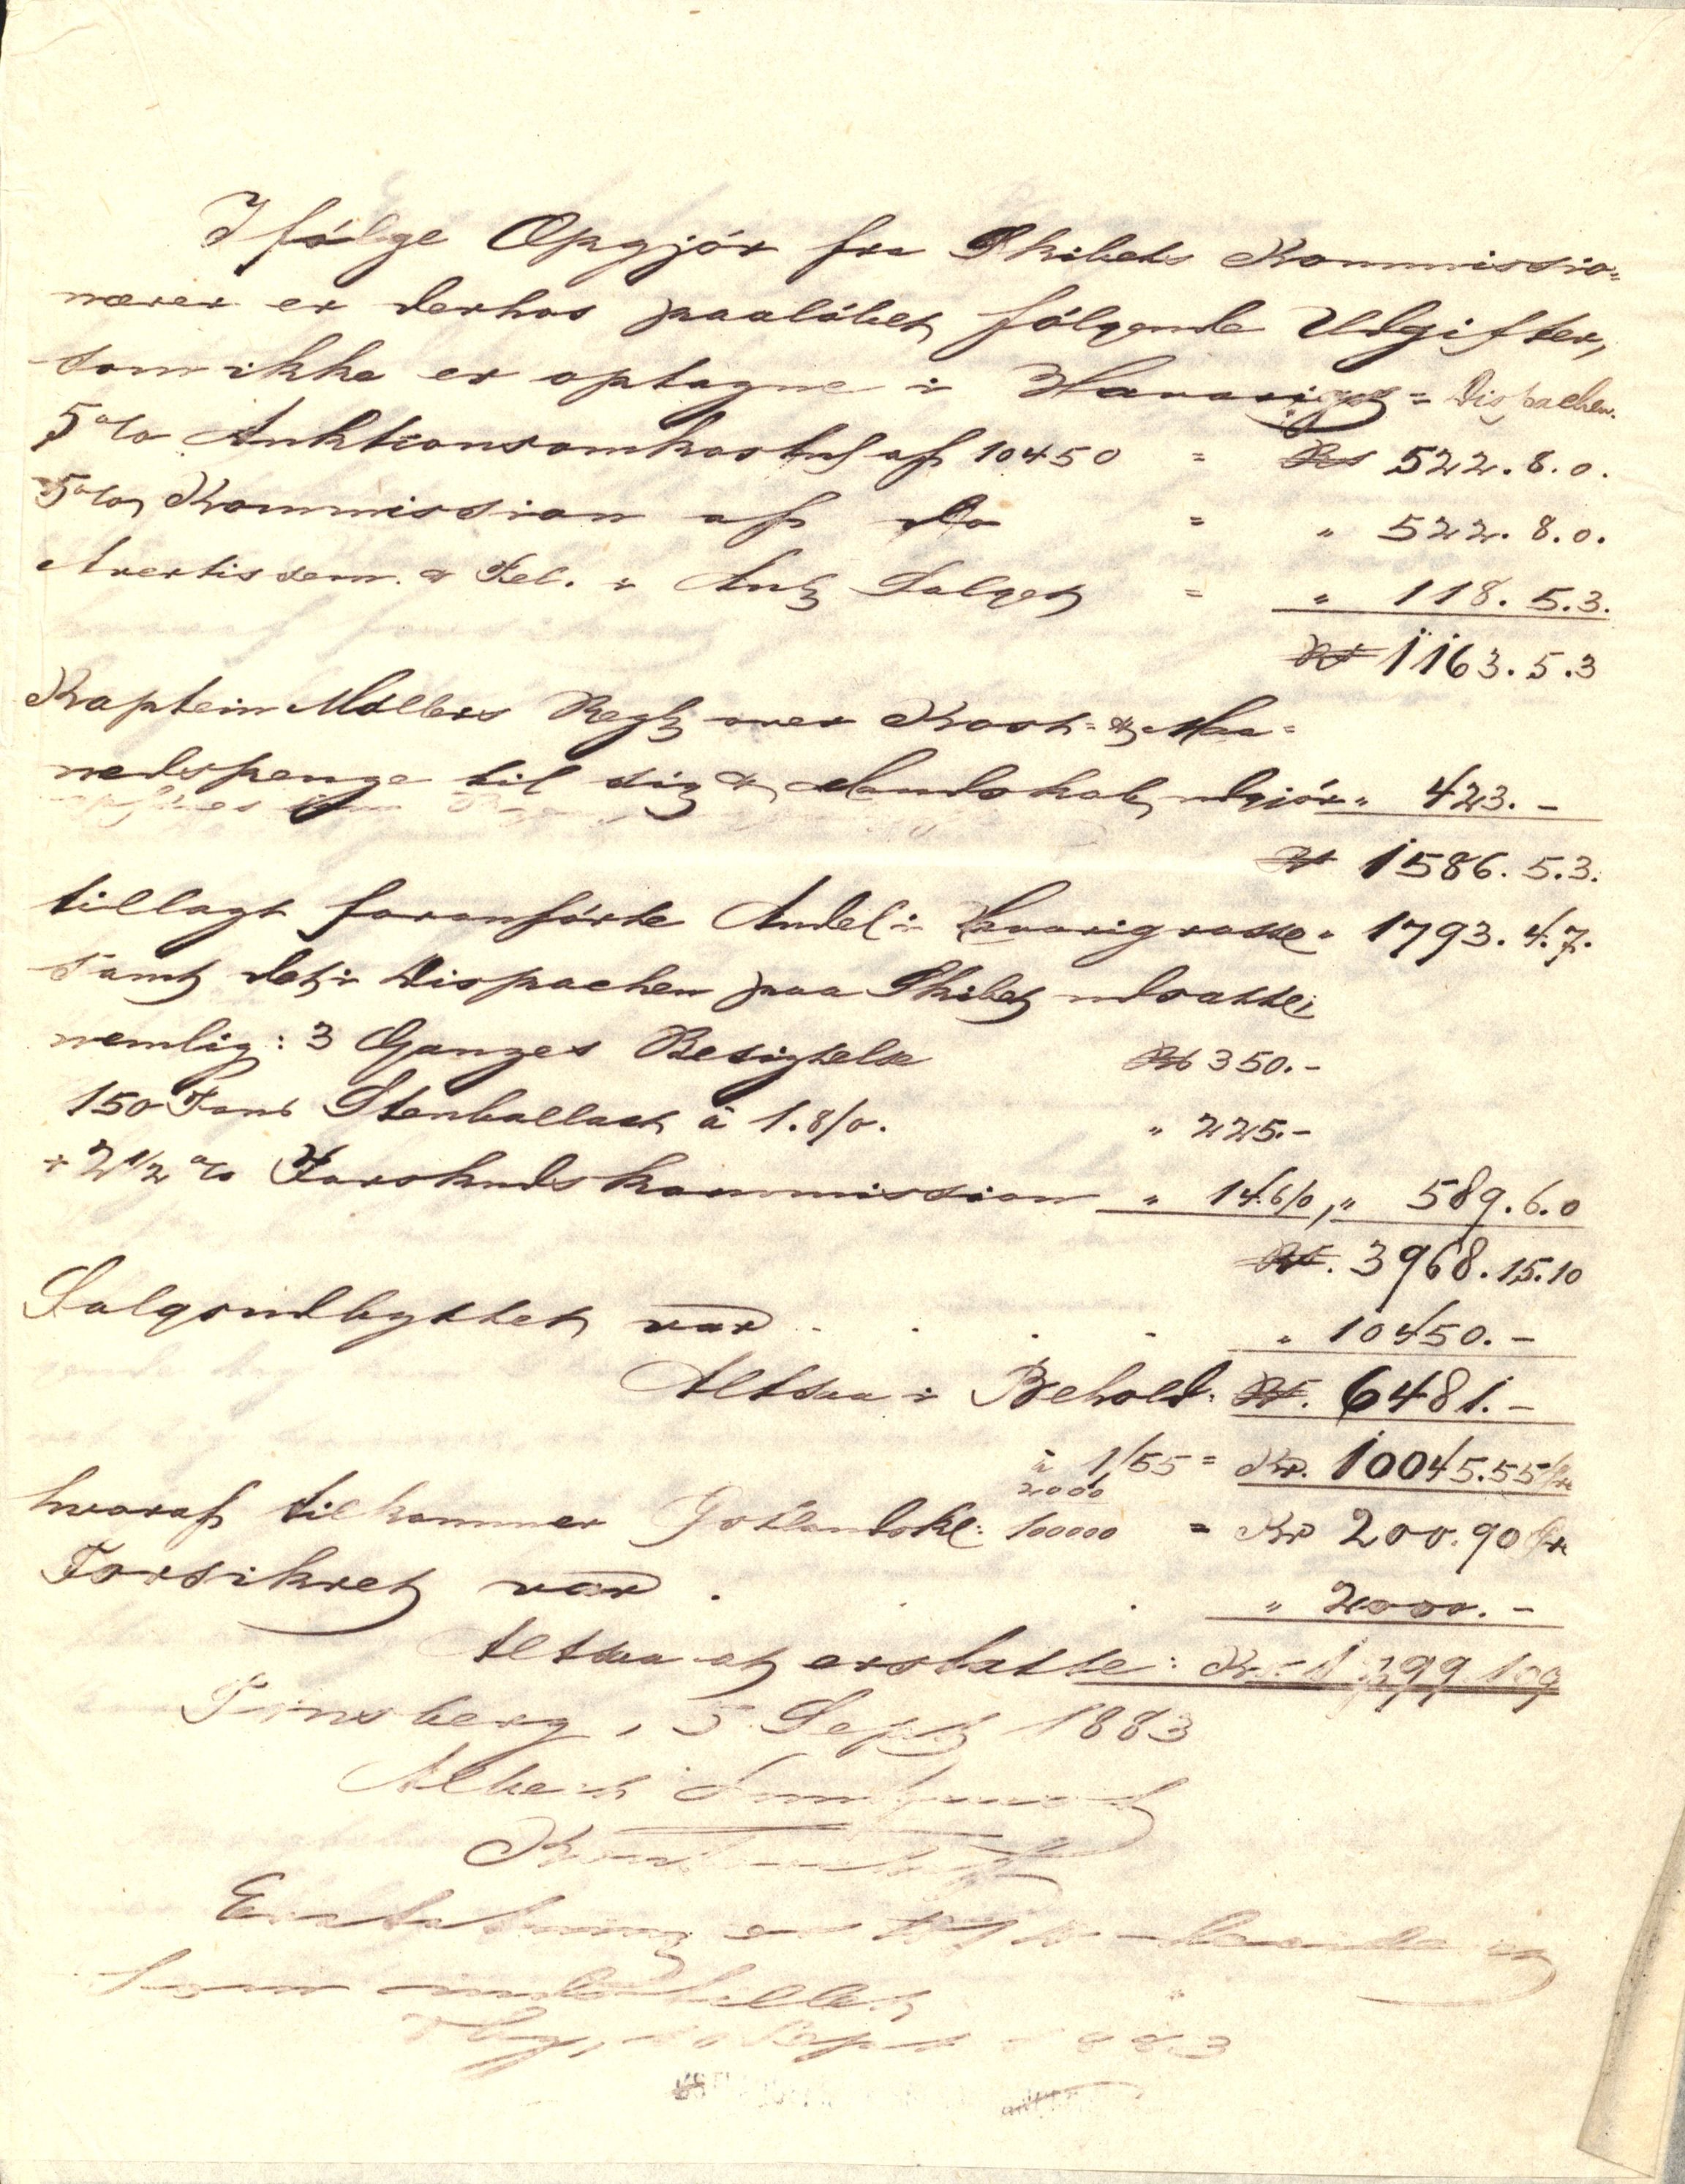 Ifølge Opgjør fra Skibets Kommissio-
nærer er derhos paaløbet følgende Udgifter,
som ikke er optagne i Havari = Dispachen.
5% Auktionsomkostn af 10450 = Rs 522.8.0.
5% Kommission af Do = " 522.8.0.
Avertissem. & Tel. i Anl Salget = " 118.5.3.
Rs 1163.5.3
Kaptein Møllers Regn over Kost- & Maa-
nedspenge til sig & Mandskab, udgjør " 423.-
Rs 1586.5.3.
tillagt foranførte Andel i Havarigrosse " 1793.4.7.
samt det i Dispachen paa Skibet udsatte,
nemlig: 3 Ganges Besigtelse Rs 350.-
150 Tons Stenballast à 1.8/0. " 225.-
+ 2 1/2 % Forskudskommission " 14.6/0, " 589.6.0
Rs. 3968.15.10
Salgsudbyttet var . . . . " 10450.-
Altsaa i Behold: Rs. 6481.-
à 1/55 = Kr. 10045.55
hvoraf tilkommer 2000
100000 = Kr 200.90
Forsikret var . . . " 2000.-
Altsaa at erstatte: Kr 1799.10
Tønsberg, 5 Sept 1883
Albert
Erstatning
1883